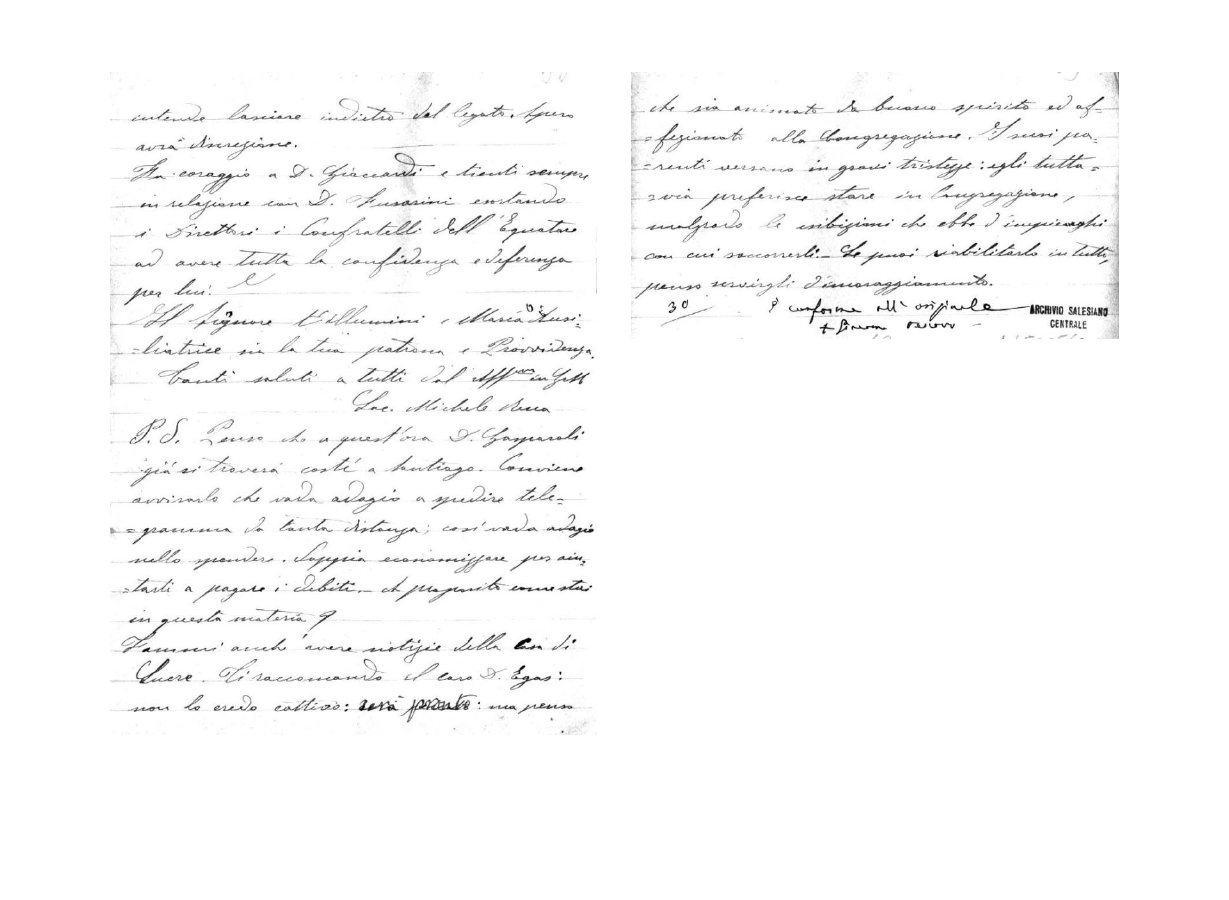 intende lasciare indietro del legato. Spero
avrà discrezione.
Fa coraggio a D. Giaccardi e tienti sempre
in relazione con D. Fusarini esortando
i Direttori i Confratelli dell'Equatore
ad avere tutta la confidenza e deferenza
per lui.
Il Signore t'allumini e Maria SS. Ausi-
=liatrice sia la tua patrona e Provvidenza.
Tanti saluti a tutti dal Aff.mo in G. M
Sac. Michele Rua
P. S. Penso che a quest'ora D. Gasparoli
già si troverà costì a Santiago. Conviene
avvisarlo che vada adagio a spedire tele=
=gramma da tanta distanza; così vada adagio
nello spendere. Sappia economizzare per aiu=
=tarti a pagare i debiti. - A proposito come stai
in questa materia?
Fammi anche avere notizie della Casa di
Sucre. Ti raccomando il caro D. Egas:
non lo credo cattivo: sarà pronto: ma penso
che sia animato da buono spirito ed af=
=fezionato alla Congregazione. I suoi pa=
=renti versano in gravi tristezze: egli tutta=
=via preferisce stare in Congregazione,
malgrado le esibizioni che ebbe d'impieghi
con cui soccorrerli. - Se puoi riabilitarlo in tutto,
penso servirgli d'incoraggiamento.
3º
È conforme all'originale
ARCHIVIO SALESIANO
CENTRALE